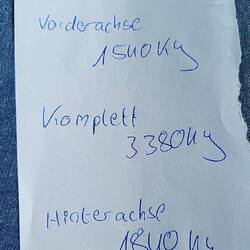 Vorderachse
1540 Kg
Komplett
3380 Kg
Hinterachse
1840 Kg